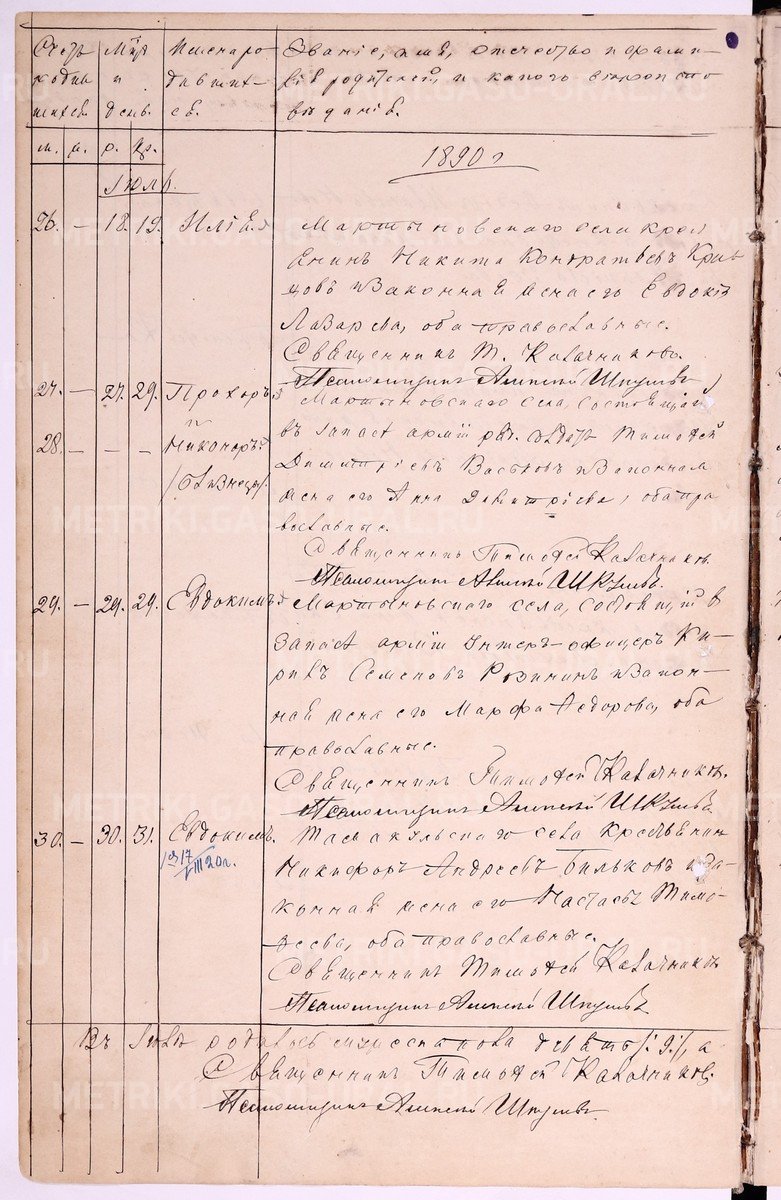 Счетъ родив шихся
Мѣс. и день.
Имена ро дивших- ся.
Званіе, имя, отчество и фами-
лія родителей, и какого вѣроиспо
вѣданія.
м. ж. р. кр.
1890 г
Іюль.
26. — 18. 19. Илія
Мартыновскаго села крес
янинъ Никита Кондратьевъ Крив
цовъ и законная жена его Евдокія
Лазарева, оба православные.
Священникъ Т. Калачниковъ.
Псаломщикъ Алексѣй Шкулевъ
27. — 27. 29. Прохоръ
и
Мартыновскаго села, состоящій
28. — — — Никоноръ
/близнецы/.
въ запасѣ арміи ряд. Тимофей
Димитріевъ Васьковъ и законная
жена его Анна Димитріева, оба пра
вославные.
Священникъ Тимофей Калачниковъ.
Псаломщикъ Алексѣй Шкулевъ.
29. — 29. 29. Евдокимъ
Мартыновскаго села, состоящій в
запасѣ арміи унтеръ-офицеръ Ки-
рилъ Семеновъ и закон-
ная жена его Марфа Ѳедорова, оба
православные.
Священникъ Тимофей Калачниковъ.
Псаломщикъ Алексѣй Шкулевъ.
30. — 30. 31. Евдокимъ.
17
VIII 20г.
села крестьянинъ
Никифоръ Андреевъ Бильковъ и за-
конная жена его Настасья Тимо-
феева, оба православные.
Священникъ Тимофей Калачниковъ
Псаломщикъ Алексѣй Шкулевъ
Въ Іюлѣ родилось мужескаго пола девять /: 9:/, а
Священникъ Тимофей Калачниковъ.
Псаломщикъ Алексѣй Шкулевъ.
METRIKI.GASO-URAL.RU